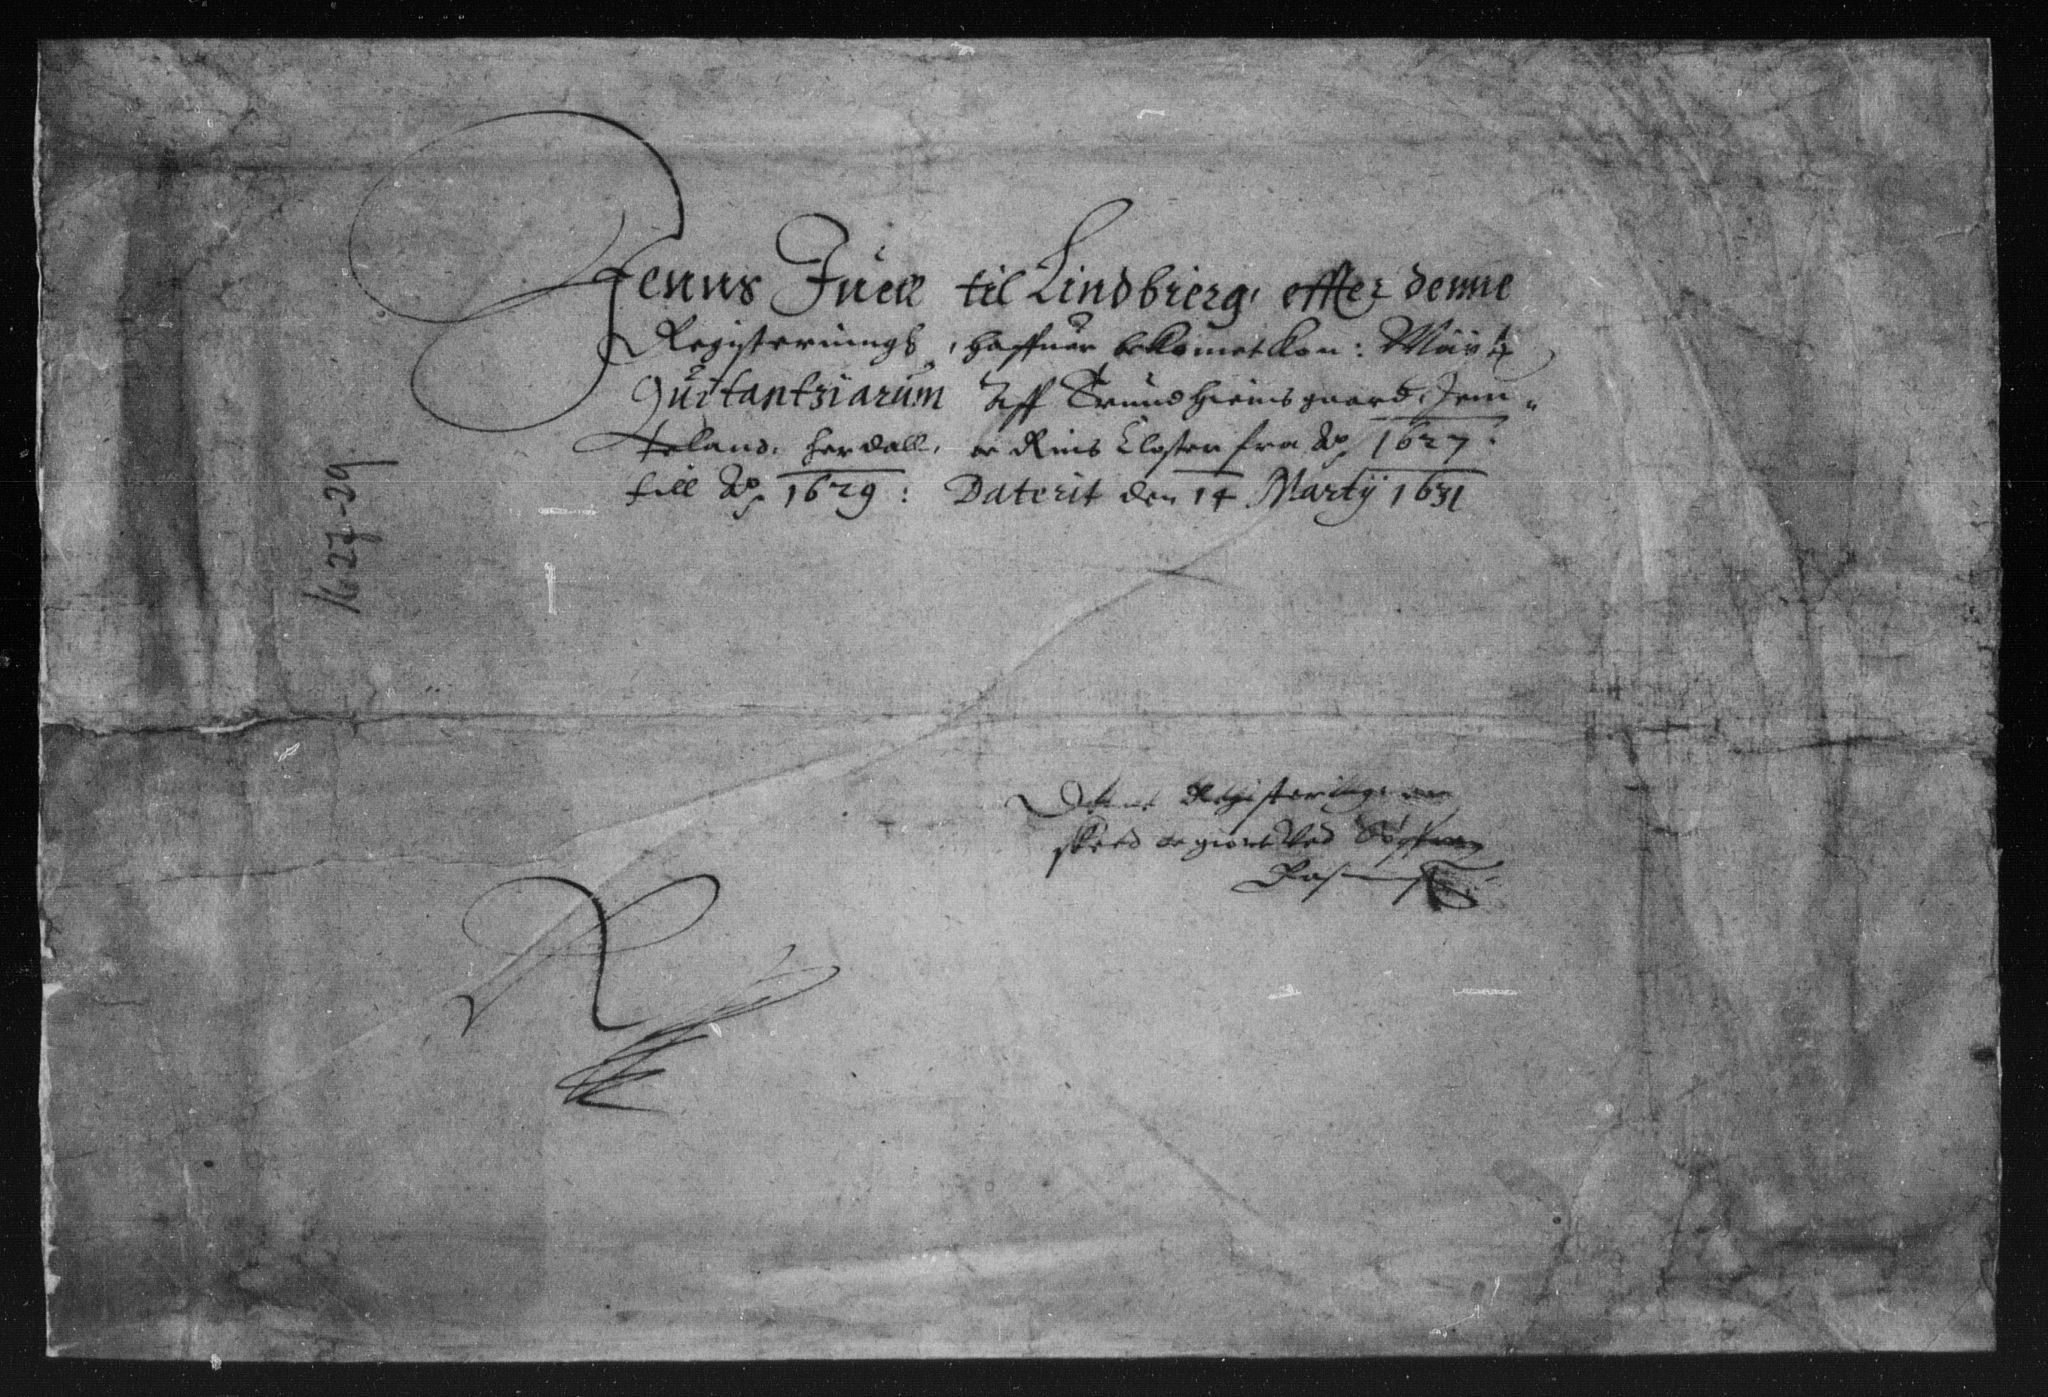 Jenns Juell til Lindbierg, effter denne
Registerinngs, haffuer bekomet Kon: Maÿtz
Quitantziarum Aff Trundhiems gaard, Jem-
teland, herdall, oc Rins Closter fra Ao 1627:
till Ao 1629: Daterit den 14 Martij 1631
1627-29
Denne Registering er
skeed oc giort Ved Søffren